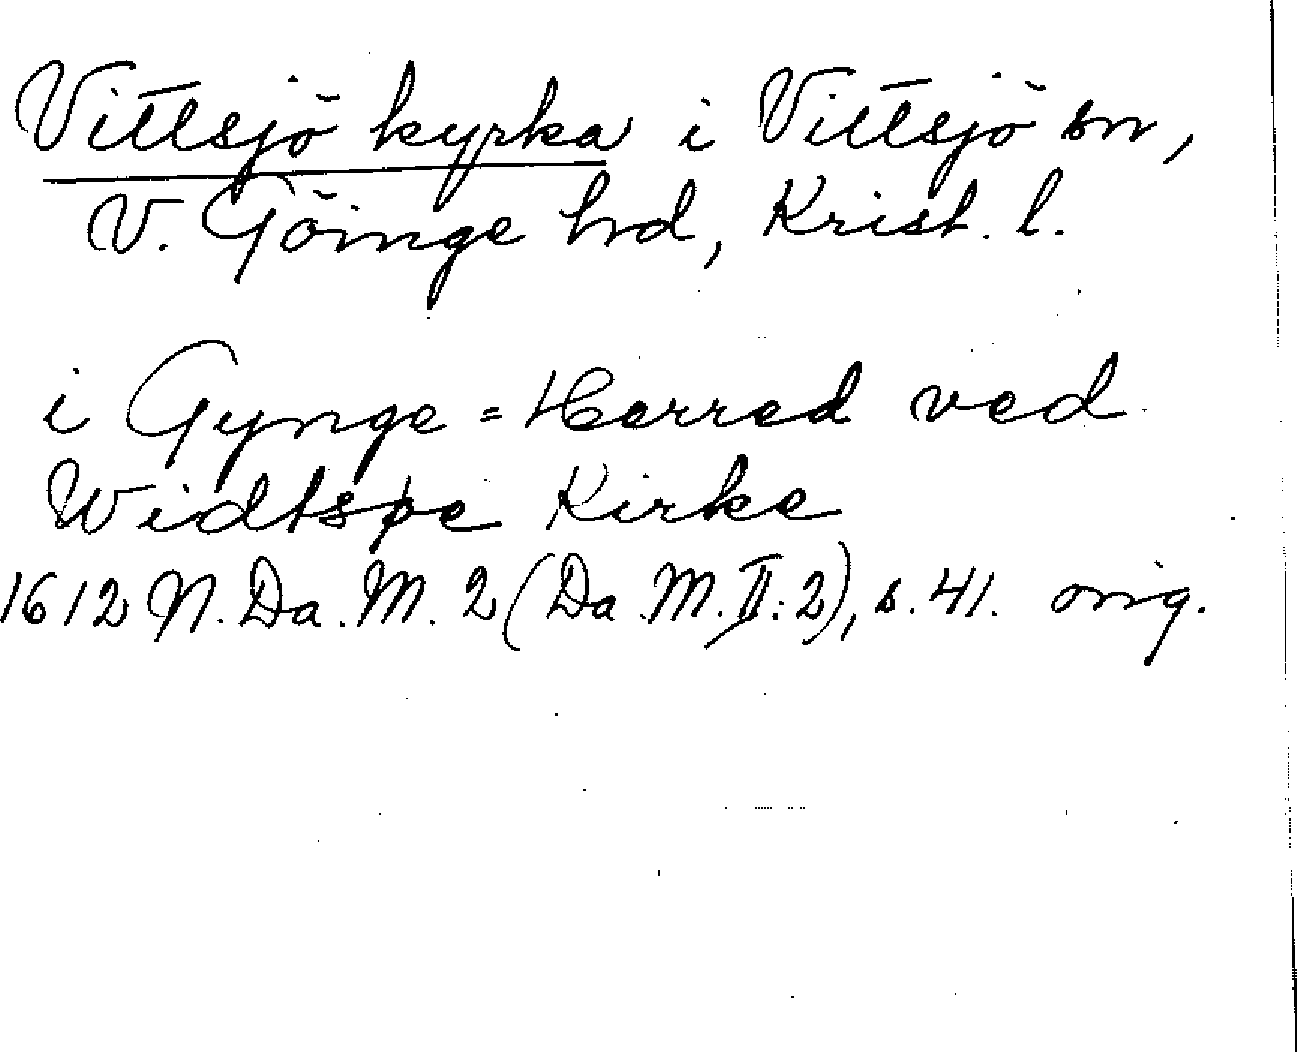 Vittsjö kyrka i Vittsjö sn,
V. Göinge hd, Krist. l.
i Gynge=Herred ved
Widtsøe Kirke
1612 N. Da. M. 2 (Da. M. II:2), s. 41. orig.